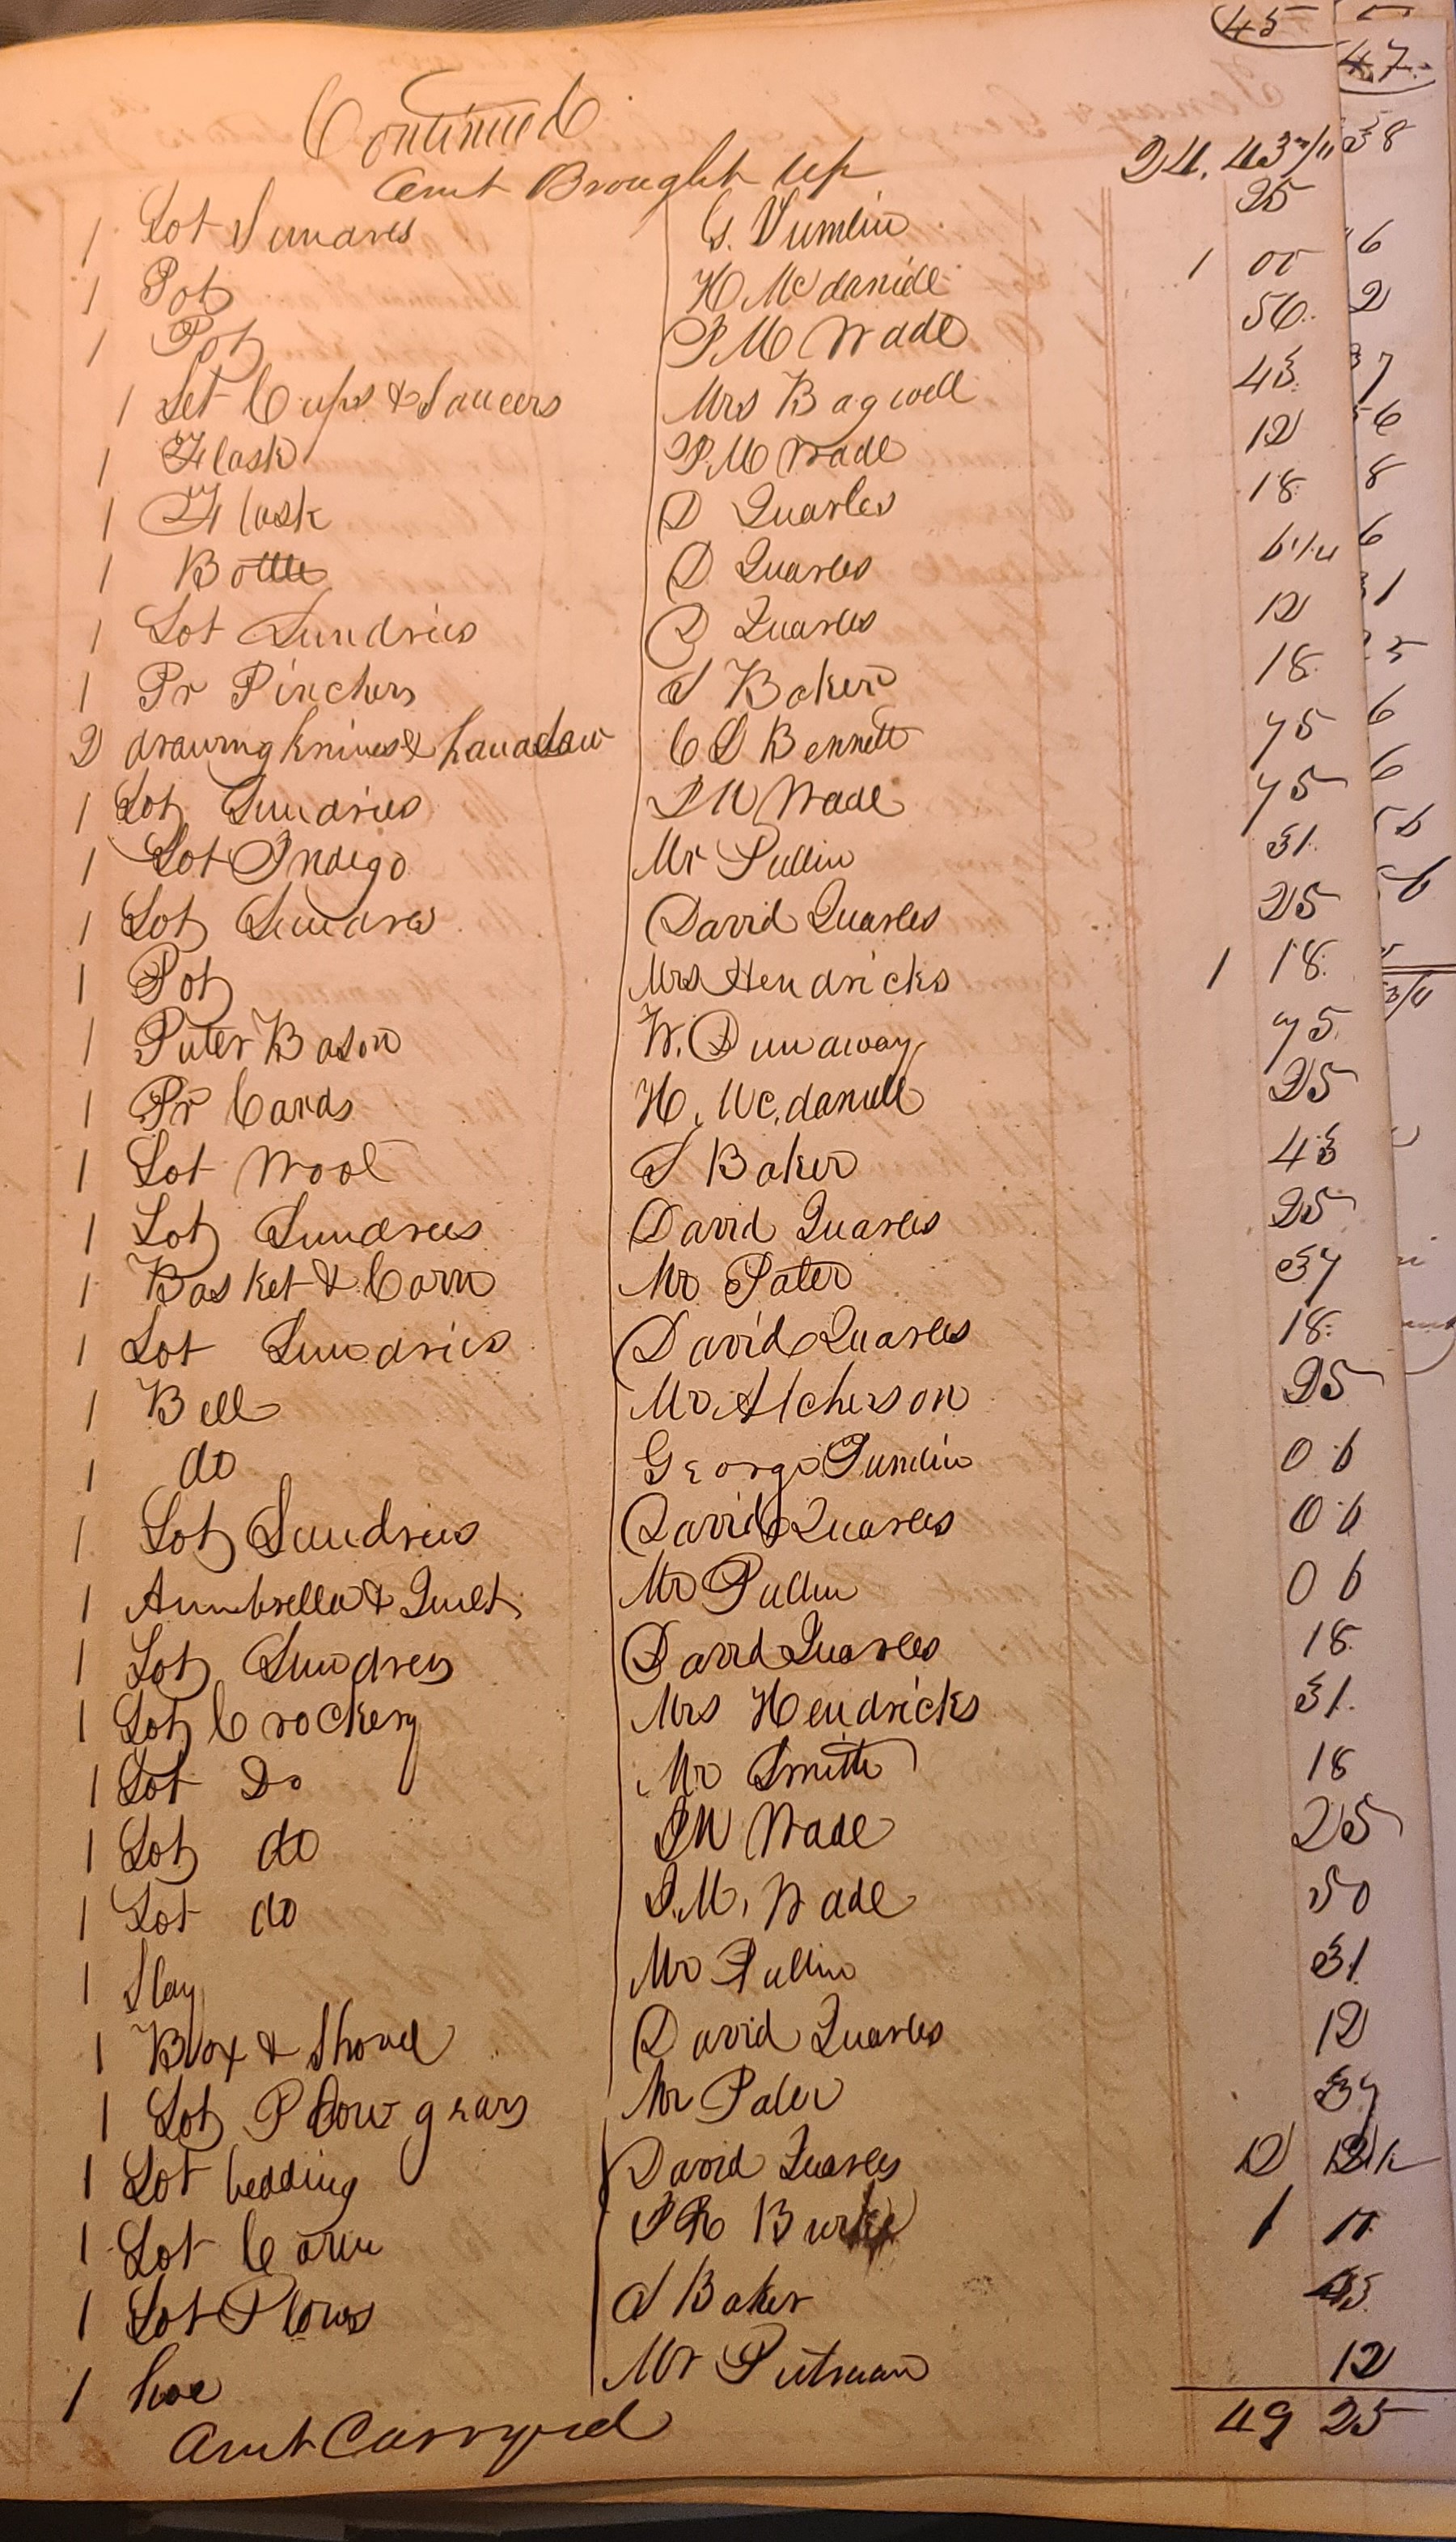 45
47
Continued
Amt Brought up 24. 43 3/4
1 Lot Sundres G. Tumlin 25
1 Pot H McDaniell 1 00
1 Pot P M Wade 50
1 Set Cups & Saucers Mrs Bagwell 43
1 Flask P M Wade 12
1 Flask D Quarles 18
1 Bottle D Quarles 6 1/4
1 Lot Sundries D Quarles 12
1 Pr Pinchers S Baker 18
2 drawing knives & handsaw C D Bennett 75
1 Lot Sundries P M Wade 75
1 Lot Indigo Mr Pullin 31
1 Lot Sundres David Quarles 25
1 Pot Mrs Hendricks 1 18
1 Puter Bason W. Dunaway 75
1 Pr Cards H. McDaniell 25
1 Lot Wool S Baker 43
1 Lot Sundrees David Quarles 25
1 Basket & Corn Mr Pater 37
1 Lot Sundries David Quarles 18
1 Bell Mr Atcherson 25
1 do George Tumlin 06
1 Lot Sundries David Quarles 06
1 Aumbrella & Quilt Mr Pullin 06
1 Lot Sundres David Quarles 18
1 Lot Crockery Mrs Hendricks 31
1 Lot Do Mr Smith 18
1 Lot do P M Wade 25
1 Lot do P. M. Wade 50
1 Slay Mr Pullin 31
1 Box & Shovel David Quarles 12
1 Lot Plow gears Mr Pater 37
1 Lot bedding David Quarles 12 12 1/2
1 Lot Corn P R Burke 1
1 Lot Plows S Baker
1 hoe Mr Putman 12
Amt Carryed 49 25